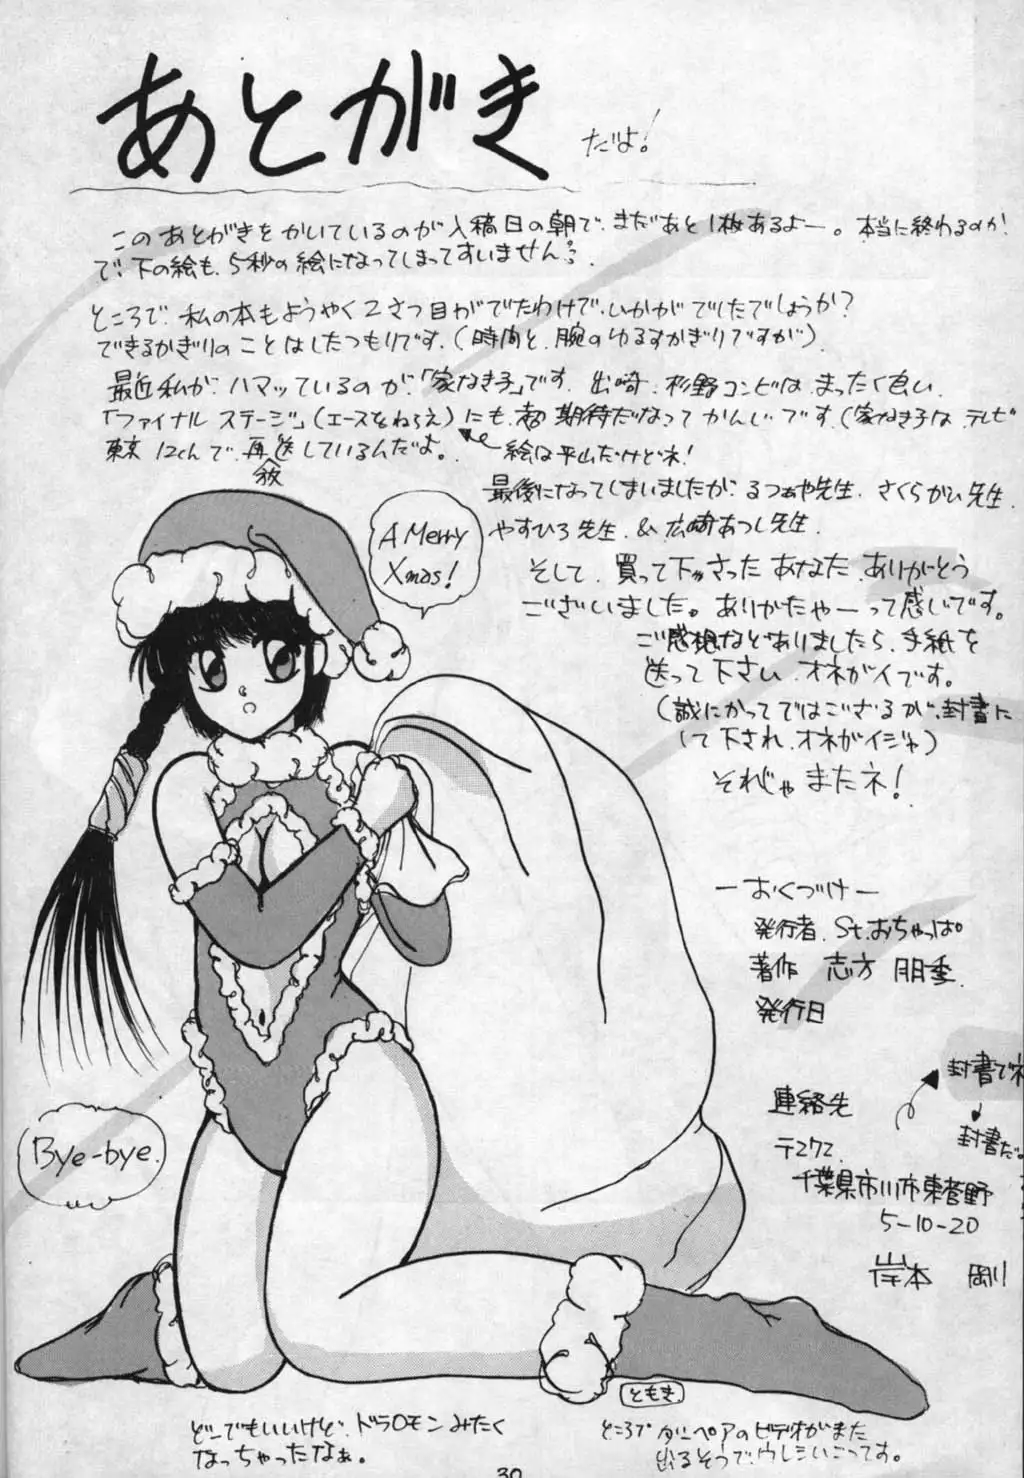 あとがき だよ!
このあとがきをかいているのが入稿日の朝で、まだあと1枚あるよー。本当に終わるのか
で、下の絵も、5秒の絵になってしまってすいません。
ところで、私の本もようやく2さつ目がでたわけで、いかがでしたでしょうか?
できるかぎりのことはしたつもりです。(時間と、腕のゆるすかぎりですが)
最近私が、ハマッているのが、「家なき子」です。出崎、杉野コンビは、まったく良い
「ファイナル ステージ」(エースをねらえ)にも、超期待だなってかんじです(家なき子は、テレビ
東京12chで、再放送しているんだよ。
絵は平山だけどネ!
最後になってしまいましたが、るつぁや先生、さくらがひ先生、
やすひろ先生、&広崎あつし先生、
そして、買って下さったあなた、ありがとう
ございました。ありがたやーって感じです。
ご感想などありましたら、手紙を
送って下さい、オネガイです。
(誠にかってではござるが、封書に
して下され、オネガイジャ)
それじゃまたネ!
A Merry
Xmas!
Bye-bye.
ーおくづけー
発行者、St.おちゃっぱ
著作 志方 朋季
発行日
封書でネ
封書だ
連絡先
〒272
千葉県市川市東菅野
5-10-20
岸本 剛
ともき
どーでもいいけど、ドラ○モンみたく
なっちゃったなぁ。
ところでダーペアのビデオがまた
出るそうで、ウレシイごってす。
30